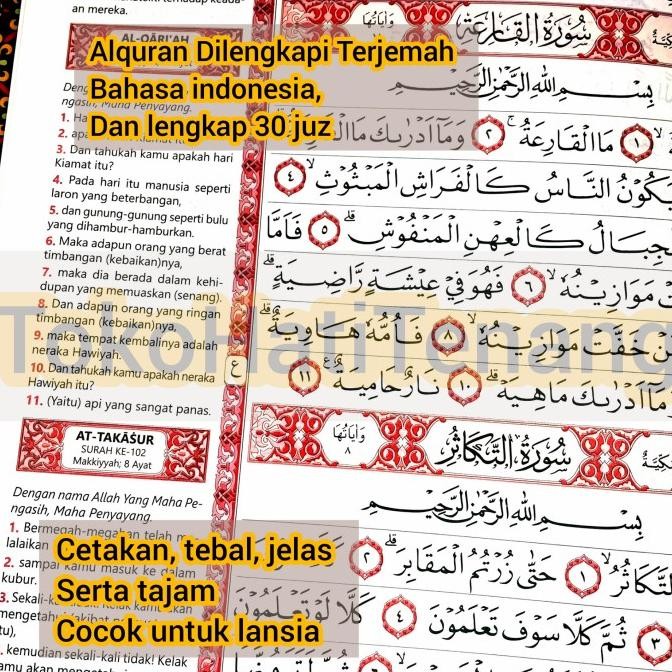 an mereka.
AL-QĀRI'AH
Alquran Dilengkapi Terjemah
Bahasa indonesia,
Dan lengkap 30 juz
3. Dan tahukah kamu apakah hari
Kiamat itu?
4. Pada hari itu manusia seperti
laron yang beterbangan,
5. dan gunung-gunung seperti bulu
yang dihambur-hamburkan.
6. Maka adapun orang yang berat
timbangan (kebaikan)nya,
7. maka dia berada dalam kehi-
dupan yang memuaskan (senang).
8. Dan adapun orang yang ringan
timbangan (kebaikan)nya,
9. maka tempat kembalinya adalah
neraka Hawiyah.
10. Dan tahukah kamu apakah neraka
Hawiyah itu?
11. (Yaitu) api yang sangat panas.
AT-TAKĀṠUR
SURAH KE-102
Makkiyyah; 8 Ayat
Dengan nama Allah Yang Maha Pe-
ngasih, Maha Penyayang.
1. Bermegah-megahan telah
lalaikan
2. sampai kamu masuk ke dalam
kubur.
Cetakan, tebal, jelas
Serta tajam
Cocok untuk lansia
kemudian sekali-kali tidak! Kelak
TokoHatiTenang
سُوْرَةُ الْقَارِعَةِ وَاٰيَاتُهَا
بِسْمِ اللّٰهِ الرَّحْمٰنِ الرَّحِيْمِ
١ مَا الْقَارِعَةُ ٢ وَمَآ اَدْرٰىكَ مَا
يَكُوْنُ النَّاسُ كَالْفَرَاشِ الْمَبْثُوْثِ ٤
الْجِبَالُ كَالْعِهْنِ الْمَنْفُوْشِ ٥ فَاَمَّا
مَوَازِيْنُهٗ ٦ فَهُوَ فِيْ عِيْشَةٍ رَّاضِيَةٍ
خَفَّتْ مَوَازِيْنُهٗ ٨ فَاُمُّهٗ هَاوِيَةٌ
وَمَآ اَدْرٰىكَ مَاهِيَهْ ١٠ نَارٌ حَامِيَةٌ ١١
ع
سُوْرَةُ التَّكَاثُرِ وَاٰيَاتُهَا ٨
بِسْمِ اللّٰهِ الرَّحْمٰنِ الرَّحِيْمِ
التَّكَاثُرُ ١ حَتّٰى زُرْتُمُ الْمَقَابِرَ ٢
٣ ثُمَّ كَلَّا سَوْفَ تَعْلَمُوْنَ ٤ كَلَّا لَوْ تَعْلَمُوْنَ